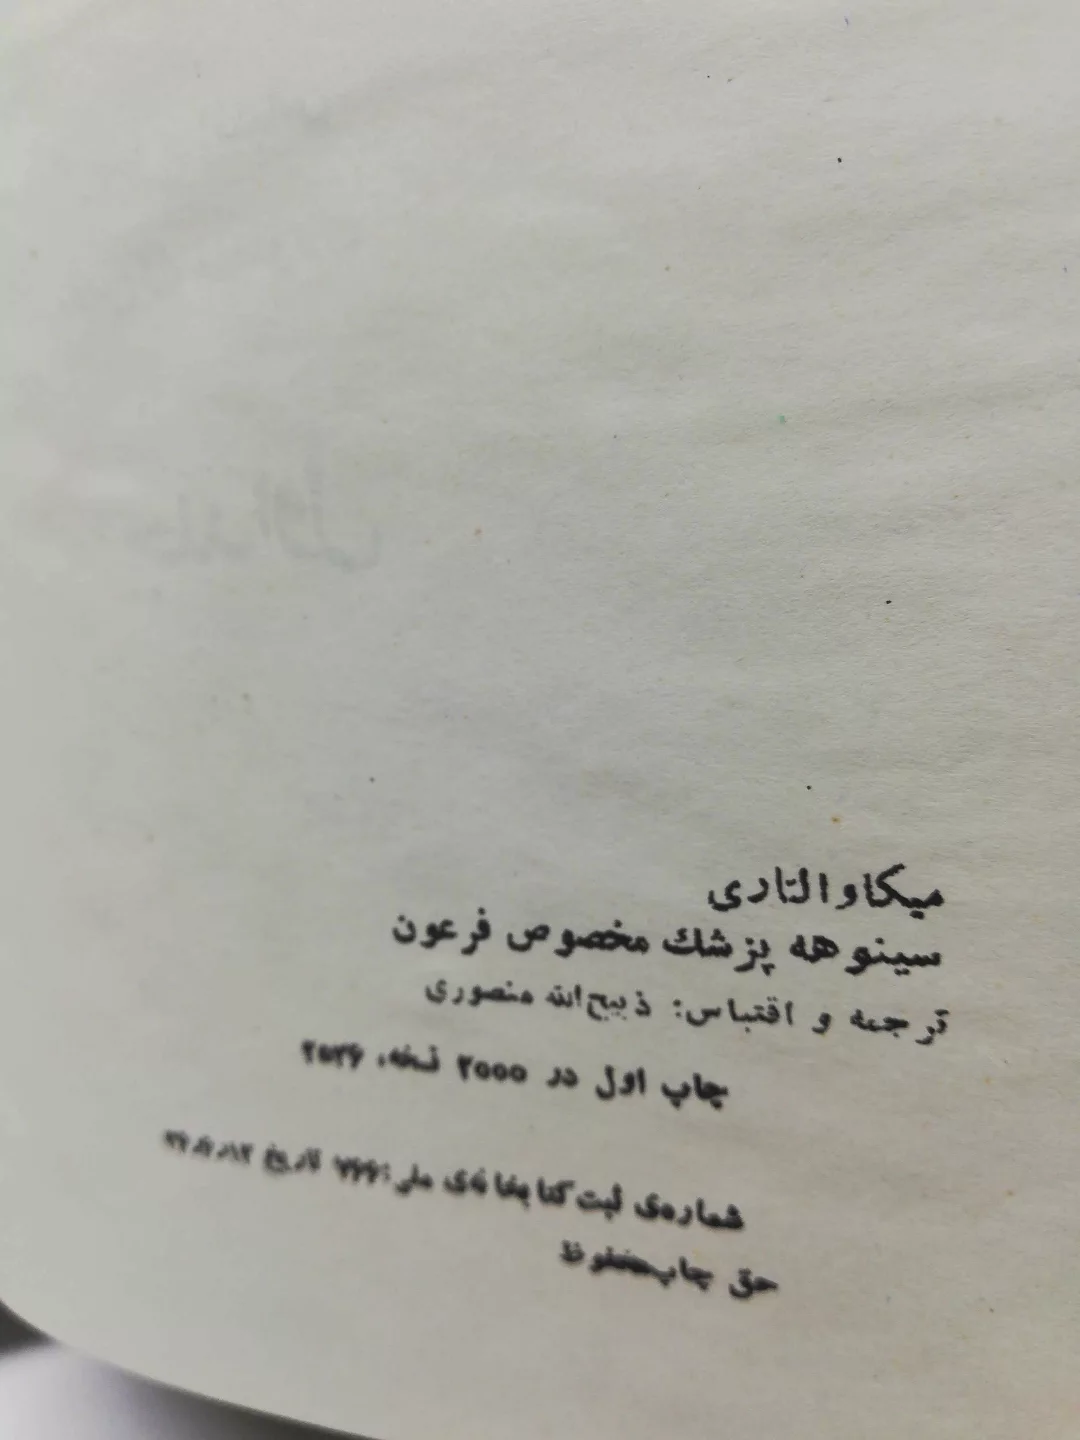 میکا والتاری
سینوهه پزشك مخصوص فرعون
ترجمه و اقتباس: ذبیح‌الله منصوری
چاپ اول در ۲۰۰۰ نسخه، ۲۵۳۶
شماره‌ی ثبت کتابخانه‌ی ملی: ۷۶۶ تاریخ
حق چاپ محفوظ